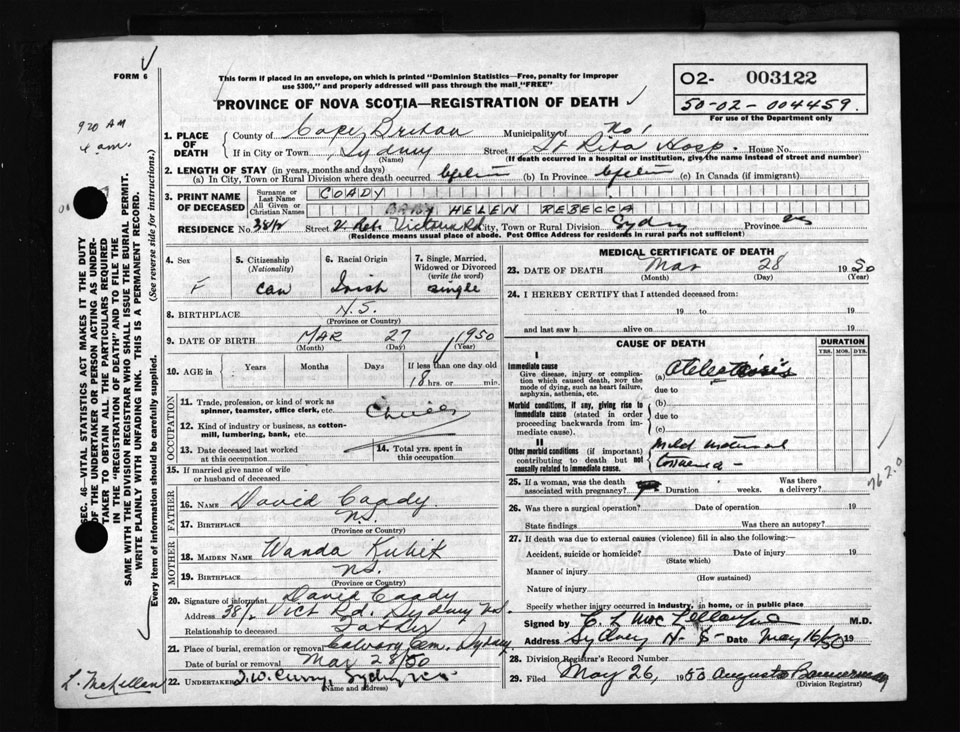 FORM 6
This form if placed in an envelope, on which is printed "Dominion Statistics—Free, penalty for improper
use $300," and properly addressed will pass through the mail "FREE"
O2- 003122
50-02-004459.
For use of the Department only
PROVINCE OF NOVA SCOTIA—REGISTRATION OF DEATH
920 AM
4 am.
1. PLACE OF DEATH
County of Cape Breton Municipality of No 1
If in City or Town Sydney Street St Rita Hosp. House No.
(Name) (If death occurred in a hospital or institution, give the name instead of street and number)
2. LENGTH OF STAY (in years, months and days)
(a) In City, Town or Rural Division where death occurred (b) In Province (c) In Canada (if immigrant)
3. PRINT NAME OF DECEASED
Surname or Last Name COADY
All Given or Christian Names BABY HELEN REBECCA
RESIDENCE No. 38½ Street Victoria Rd City, Town or Rural Division Sydney Province
(Residence means usual place of abode. Post Office Address for residents in rural parts not sufficient)
4. Sex F
5. Citizenship (Nationality) Can
6. Racial Origin Irish
7. Single, Married, Widowed or Divorced (write the word) single
8. BIRTHPLACE N.S.
(Province or Country)
9. DATE OF BIRTH MAR 27 1950
(Month) (Day) (Year)
10. AGE in Years Months Days If less than one day old
18 hrs. or min.
OCCUPATION
11. Trade, profession, or kind of work as
spinner, teamster, office clerk, etc.
12. Kind of industry or business, as cotton-
mill, lumbering, bank, etc.
13. Date deceased last worked
at this occupation
14. Total yrs. spent in
this occupation
15. If married give name of wife
or husband of deceased
FATHER
16. NAME David Coady
17. BIRTHPLACE N.S.
(Province or Country)
MOTHER
18. MAIDEN NAME Wanda Kubik
19. BIRTHPLACE N.S.
(Province or Country)
20. Signature of informant David Coady
Address 38½ Vict Rd. Sydney N.S.
Relationship to deceased Father
21. Place of burial, cremation or removal Calvary Cem. Sydney
Date of burial or removal Mar 28/50
22. UNDERTAKER J. W. Curry, Sydney N.S.
(Name and address)
L. McLellan
MEDICAL CERTIFICATE OF DEATH
23. DATE OF DEATH Mar 28 1950
(Month) (Day) (Year)
24. I HEREBY CERTIFY that I attended deceased from:
19 to 19
and last saw h alive on 19
CAUSE OF DEATH
DURATION
YRS. MOS. DYS.
I
Immediate cause
Give disease, injury or complica-
tion which caused death, not the
mode of dying, such as heart failure,
asphyxia, asthenia, etc.
(a) Atelectasis
due to
Morbid conditions, if any, giving rise to
immediate cause (stated in order
proceeding backwards from im-
mediate cause).
(b)
due to
(c)
II
Other morbid conditions (if important)
contributing to death but not
causally related to immediate cause.
Mild maternal
toxaemia -
762.0
25. If a woman, was the death
associated with pregnancy? Duration weeks. Was there
a delivery?
26. Was there a surgical operation? Date of operation 19
State findings Was there an autopsy?
27. If death was due to external causes (violence) fill in also the following:—
Accident, suicide or homicide? Date of injury 19
(State which)
Manner of injury
(How sustained)
Nature of injury
Specify whether injury occurred in industry, in home, or in public place
Signed by M.D.
Address Sydney N S Date May 16/50 19
28. Division Registrar's Record Number
29. Filed May 26, 1950 Augusta Bannerman
(Division Registrar)
SEC. 46—VITAL STATISTICS ACT MAKES IT THE DUTY
OF THE UNDERTAKER OR PERSON ACTING AS UNDER-
TAKER TO OBTAIN ALL THE PARTICULARS REQUIRED
IN THE "REGISTRATION OF DEATH" AND TO FILE THE
SAME WITH THE DIVISION REGISTRAR WHO SHALL ISSUE THE BURIAL PERMIT.
WRITE PLAINLY WITH UNFADING INK. THIS IS A PERMANENT RECORD.
Every item of information should be carefully supplied. (See reverse side for instructions.)